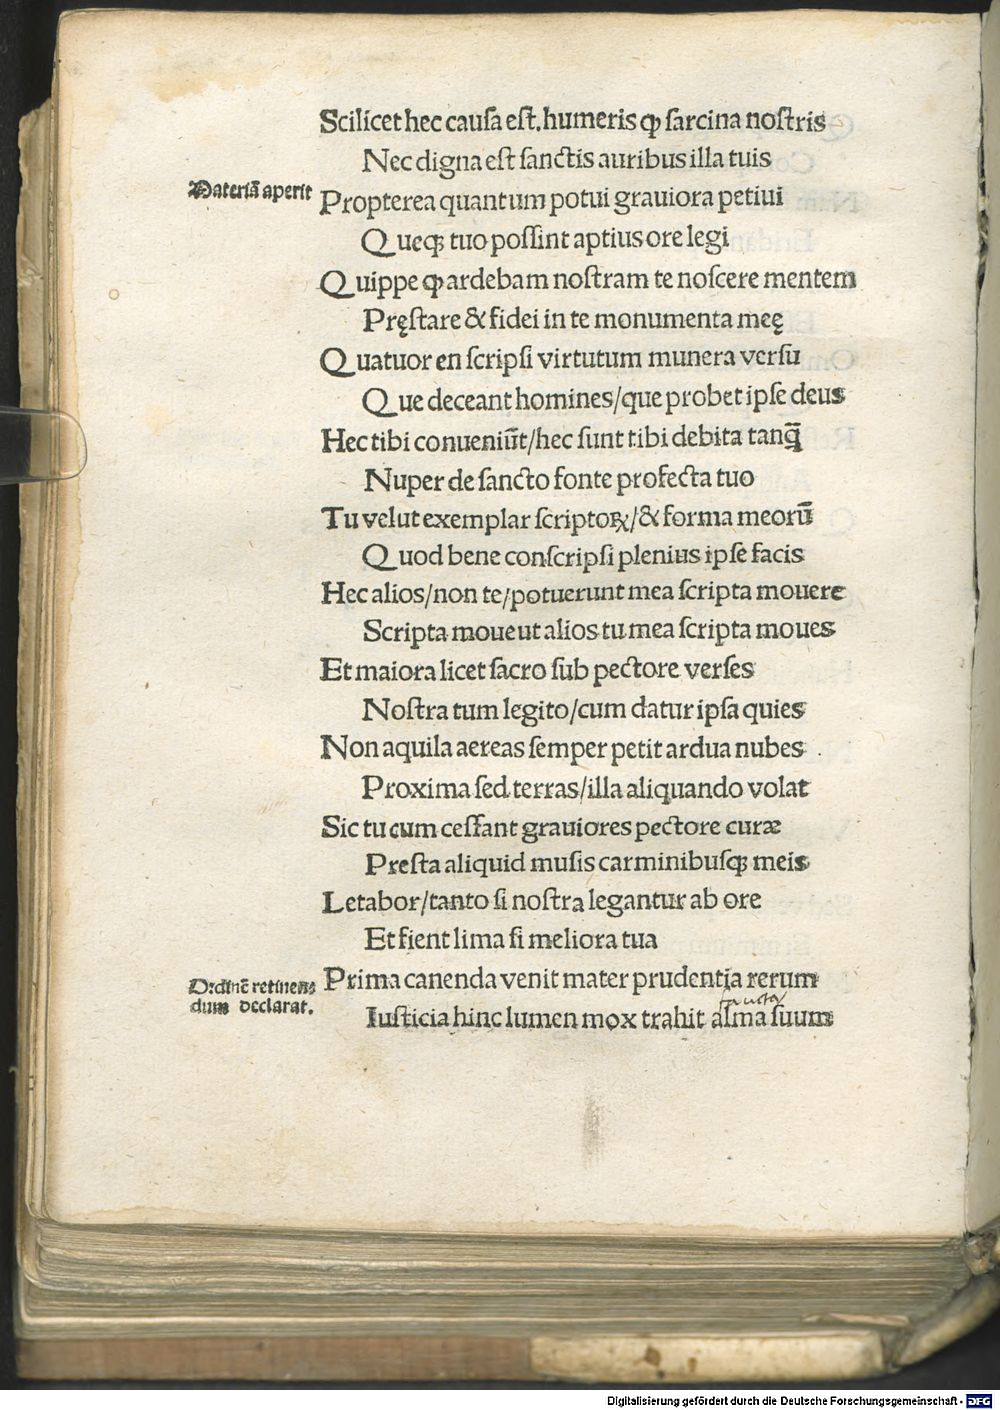 Scilicet hec causa est. humeris ꝙ sarcina nostris
Nec digna est sanctis auribus illa tuis
Materiā aperit
Propterea quantum potui grauiora petiui
Queqꝫ tuo possint aptius ore legi
Quippe ꝙ ardebam nostram te noscere mentem
Pręstare & fidei in te monumenta meę
Quatuor en scripsi virtutum munera versu
Que deceant homines/que probet ipse deus
Hec tibi conueniūt/hec sunt tibi debita tanq̄
Nuper de sancto fonte profecta tuo
Tu velut exemplar scriptoꝝ/& forma meorū
Quod bene conscripsi plenius ipse facis
Hec alios/non te/potuerunt mea scripta mouere
Scripta moueut alios tu mea scripta moues
Et maiora licet sacro sub pectore verses
Nostra tum legito/cum datur ipsa quies
Non aquila aereas semper petit ardua nubes
Proxima sed terras/illa aliquando volat
Sic tu cum cessant grauiores pectore curæ
Presta aliquid musis carminibusqꝫ meis
Letabor/tanto si nostra legantur ab ore
Et fient lima si meliora tua
Ordinē retinen
dum declarat.
Prima canenda venit mater prudentia rerum
Iusticia hinc lumen mox trahit alma suum
Digitalisierung gefördert durch die Deutsche Forschungsgemeinschaft - DFG